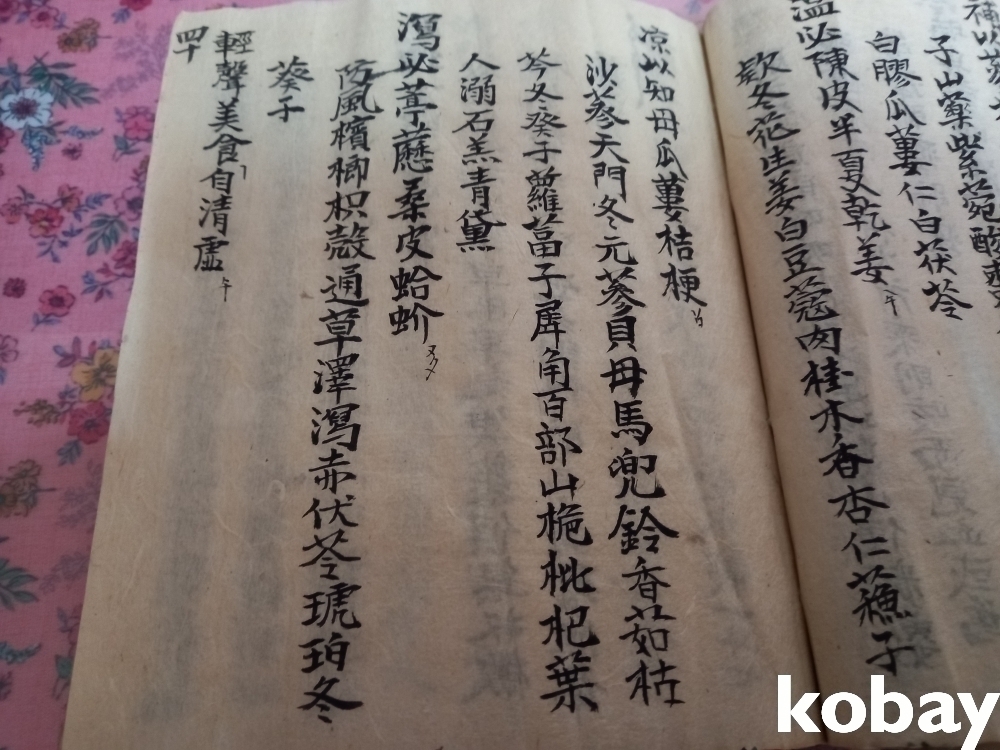 補以
子山藥紫菀酸棗
白膠瓜蔞仁白茯苓
溫必陳皮半夏乾姜
款冬花生姜白豆蔻肉桂木香杏仁蘓子
凉以知母瓜蔞桔梗
沙蔘天門冬元蔘貝母馬兜鈴香茹枯
芩冬葵子蘿葍子犀角百部山梔枇杷葉
人溺石羔靑黛
瀉必葶藶桑皮蛤蚧
防風檳榔枳殼通草澤瀉赤伏苓琥珀冬
葵子
輕聲美食自清虛
四十
kobay